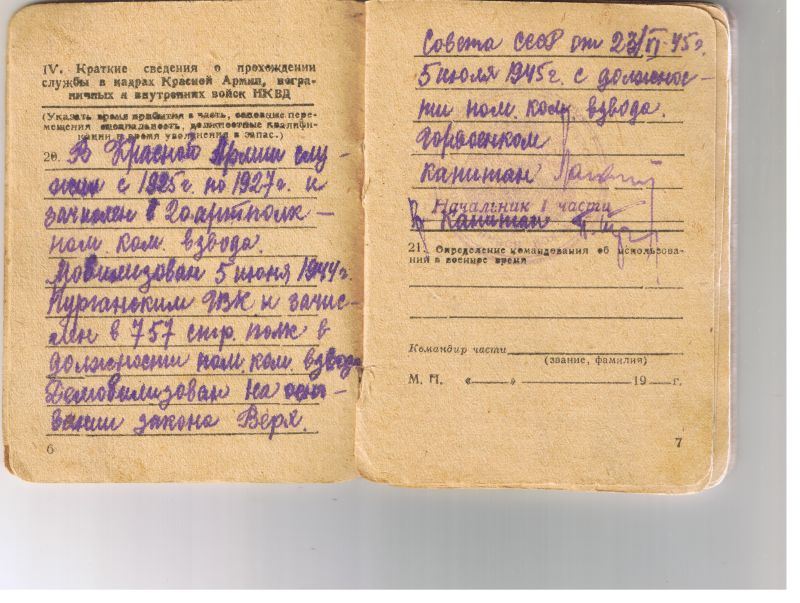 IV. Краткие сведения о прохождении
службы в кадрах Красной Армии, погра-
ничных и внутренних войск НКВД
(Указать время прибытия в часть, основные пере-
мещения специальность, должностные квалифи-
кации и время увольнения в запас.)
20. В Красной Армии слу-
жил с 1925г. по 1927г. и
зачислен в 20 артполк –
пом. ком. взвода.
Мобилизован 5 июня 1944г.
Курганским ГВК и зачис-
лен в 757 стр. полк в
должности пом. ком. взвода
Демобилизован на осно-
вании закона Верх.
6
Совета СССР от 23/VI-45г.
5 июля 1945г. с должнос-
ти пом. ком. взвода.
Горвоенком
капитан
Начальник 1 части
Капитан
21. Определение командования об использова-
нии в военное время
Командир части
(звание, фамилия)
М. П. « » 19 г.
7